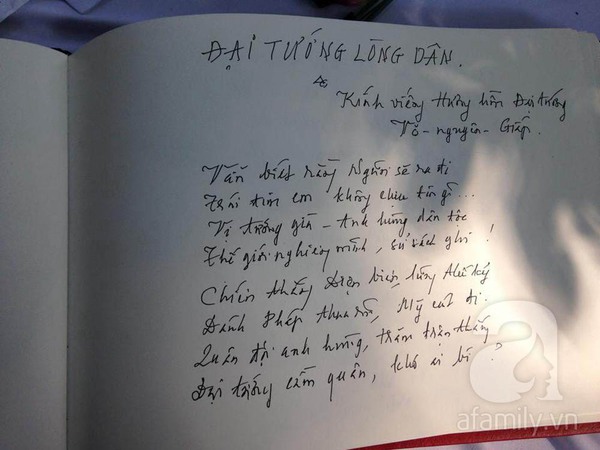 ĐẠI TƯỚNG LÒNG DÂN.
Kính viếng Hương hồn Đại tướng
Võ - nguyên - Giáp.
Vẫn biết rằng Người sẽ ra đi
Trái tim em không chịu tin gì...
Vị tướng già - Anh hùng dân tộc
Thế giới nghiêng mình, sử sách ghi!
Chiến thắng Điện biên, lừng thế kỷ
Đánh Pháp thua rồi, Mỹ cút đi.
Quân đội anh hùng, trăm trận thắng
Đại tướng cầm quân, khó ai bì?
afamily.vn